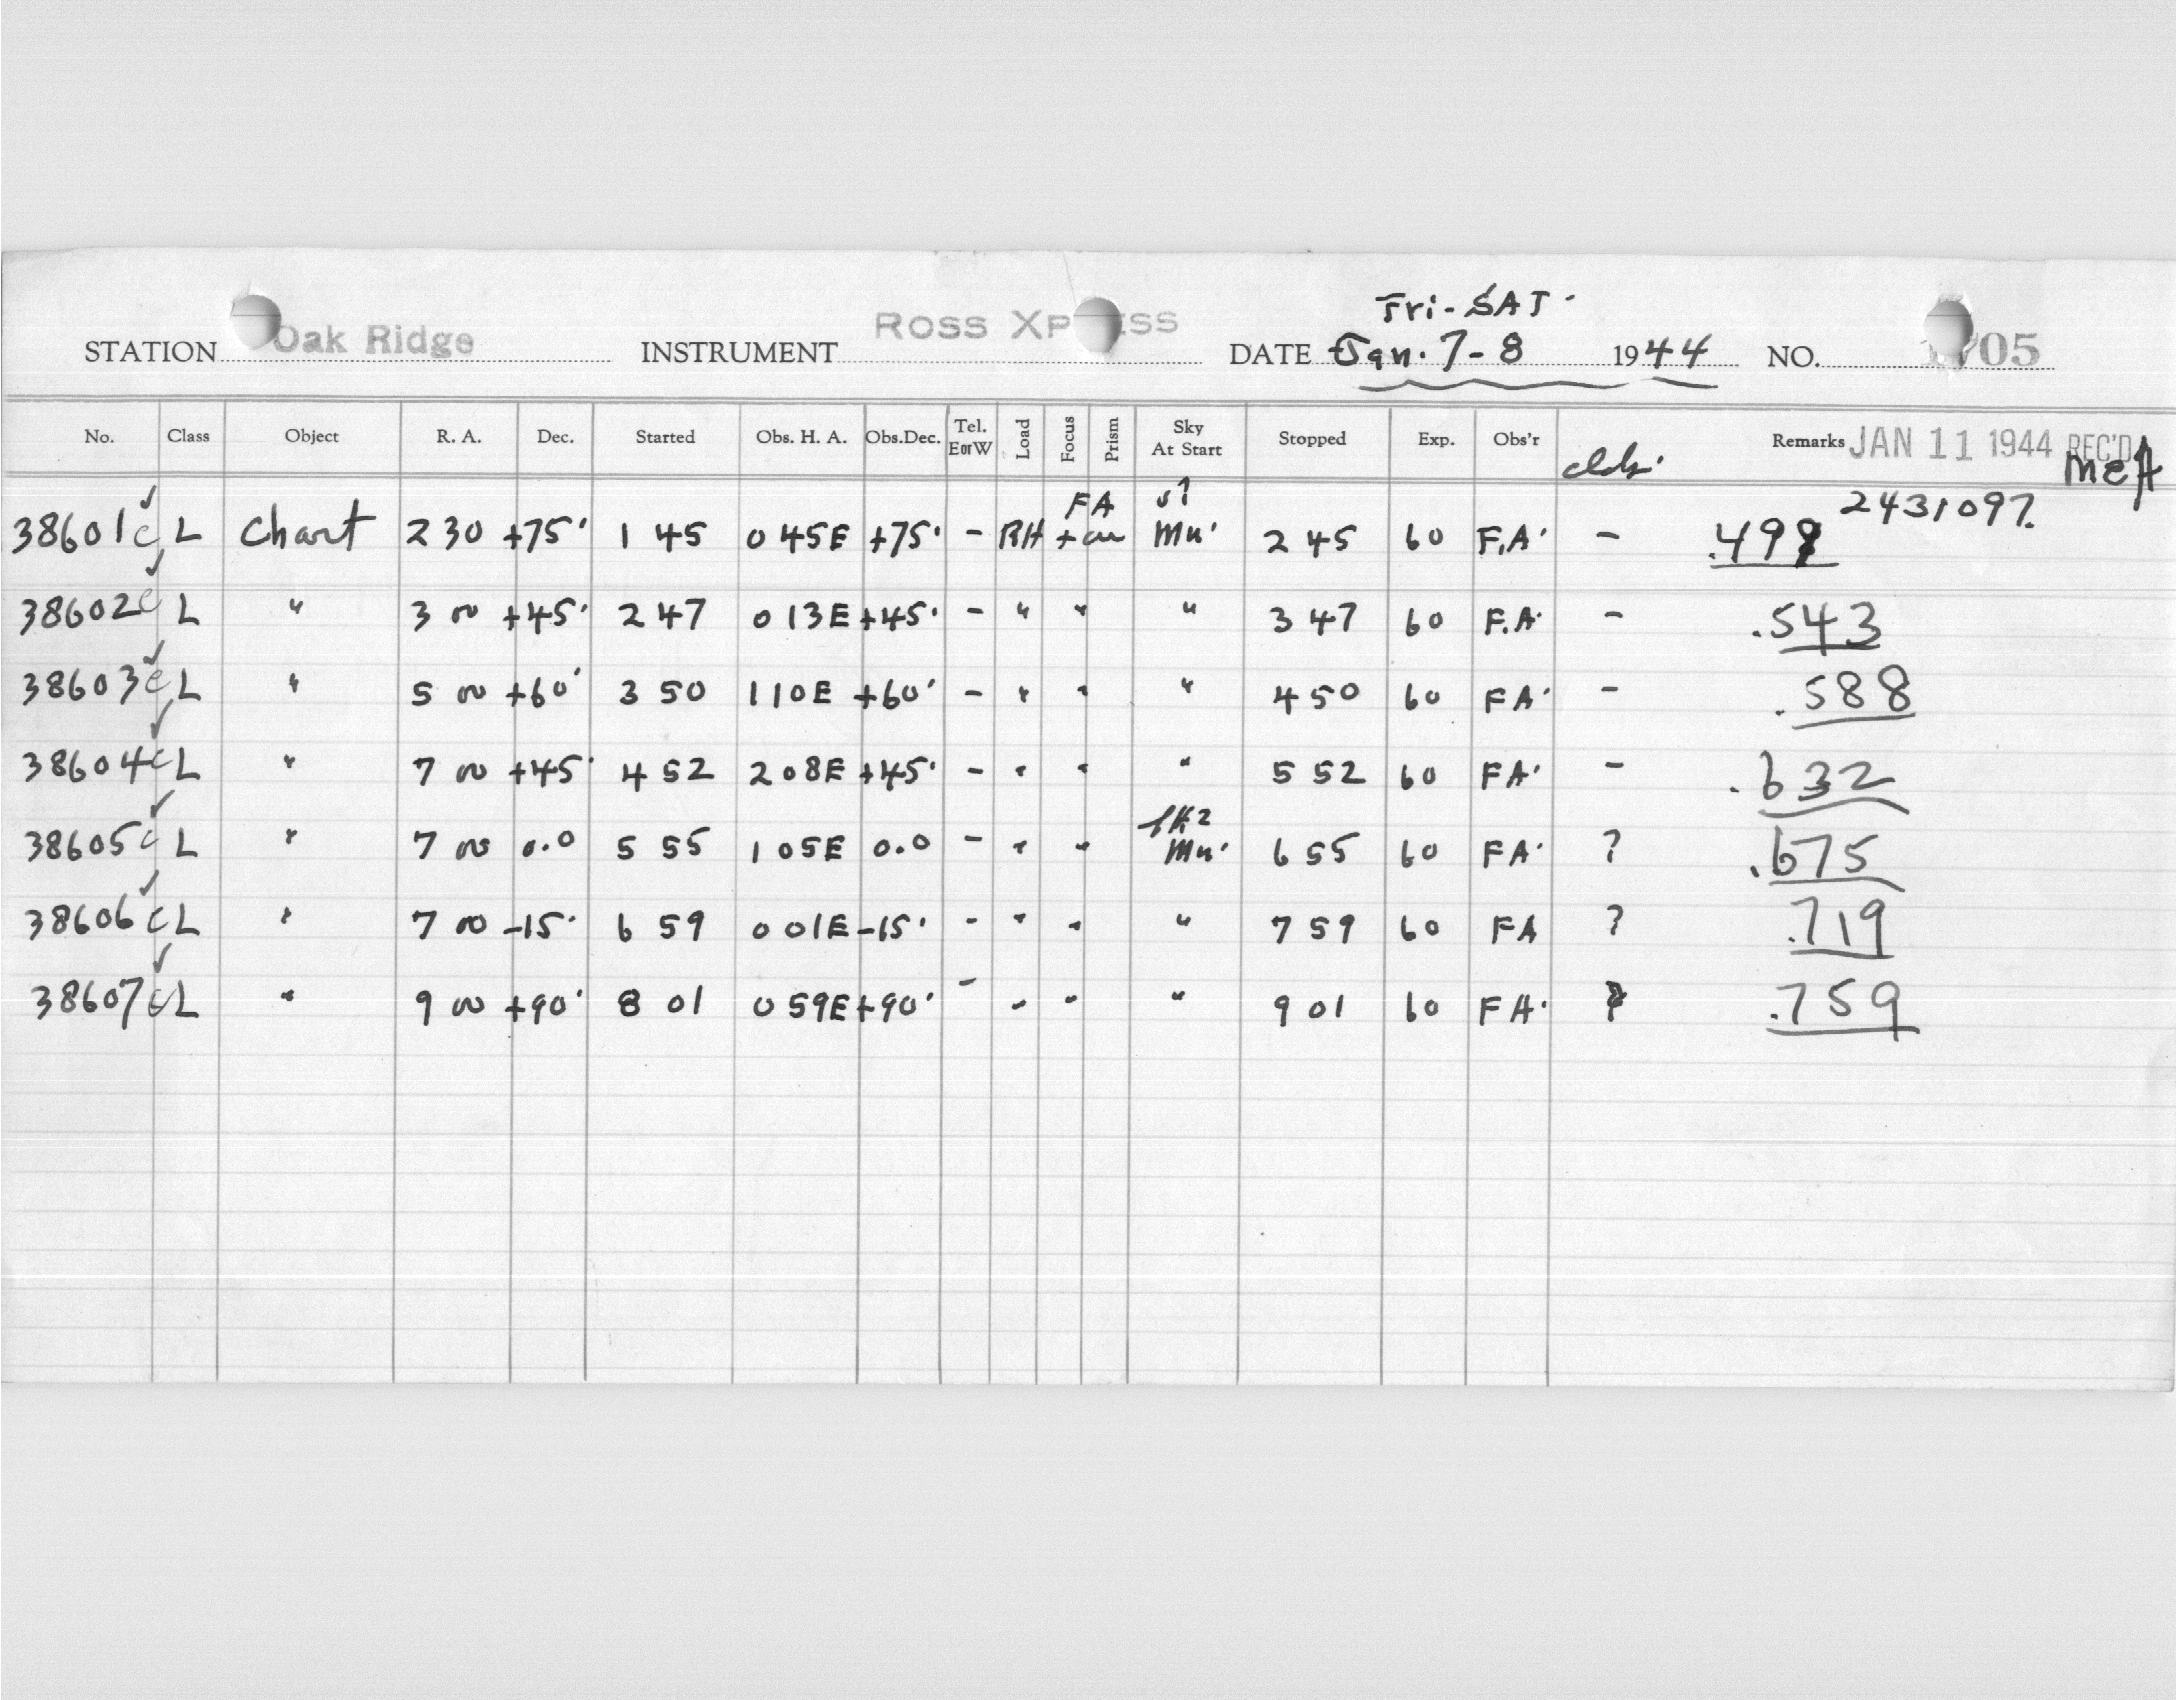 Fri - SAT.
STATION Oak Ridge INSTRUMENT ROSS XP SS DATE Jan. 7-8 1944 NO. 705
No. Class Object R. A. Dec. Started Obs. H. A. Obs.Dec. Tel. EorW Load Focus Prism Sky At Start Stopped Exp. Obs'r clds. Remarks JAN 11 1944 REC'D
MEA
2431097.
38601c L Chart 2 30 +75° 1 45 0 45E +75° - RH FA + cu s1 Mn. 2 45 60 F.A. - .498
38602c L " 3 00 +45° 2 47 0 13E +45° - " " " 3 47 60 F.A. - .543
38603c L " 5 00 +60° 3 50 1 10E +60° - " " " 4 50 60 FA. - .588
38604c L " 7 00 +45° 4 52 2 08E +45° - " " " 5 52 60 FA. - .632
38605c L " 7 00 0.0 5 55 1 05E 0.0 - " " Mn. 6 55 60 FA. ? .675
38606c L " 7 00 -15° 6 59 0 01E -15° - " " " 7 59 60 FA ? .719
38607c L " 9 00 +90° 8 01 0 59E +90° - " " " 9 01 60 FA. ? .759